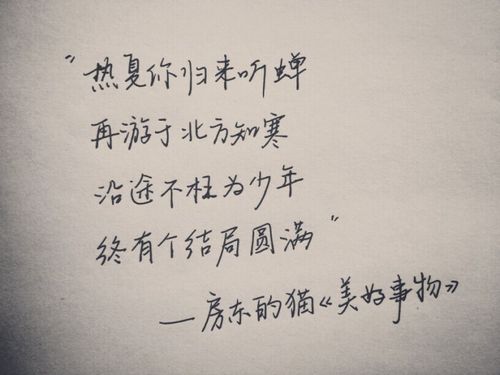 "热夏你归来听蝉
再游于北方知寒
沿途不枉为少年
终有个结局圆满"
—房东的猫《美好事物》